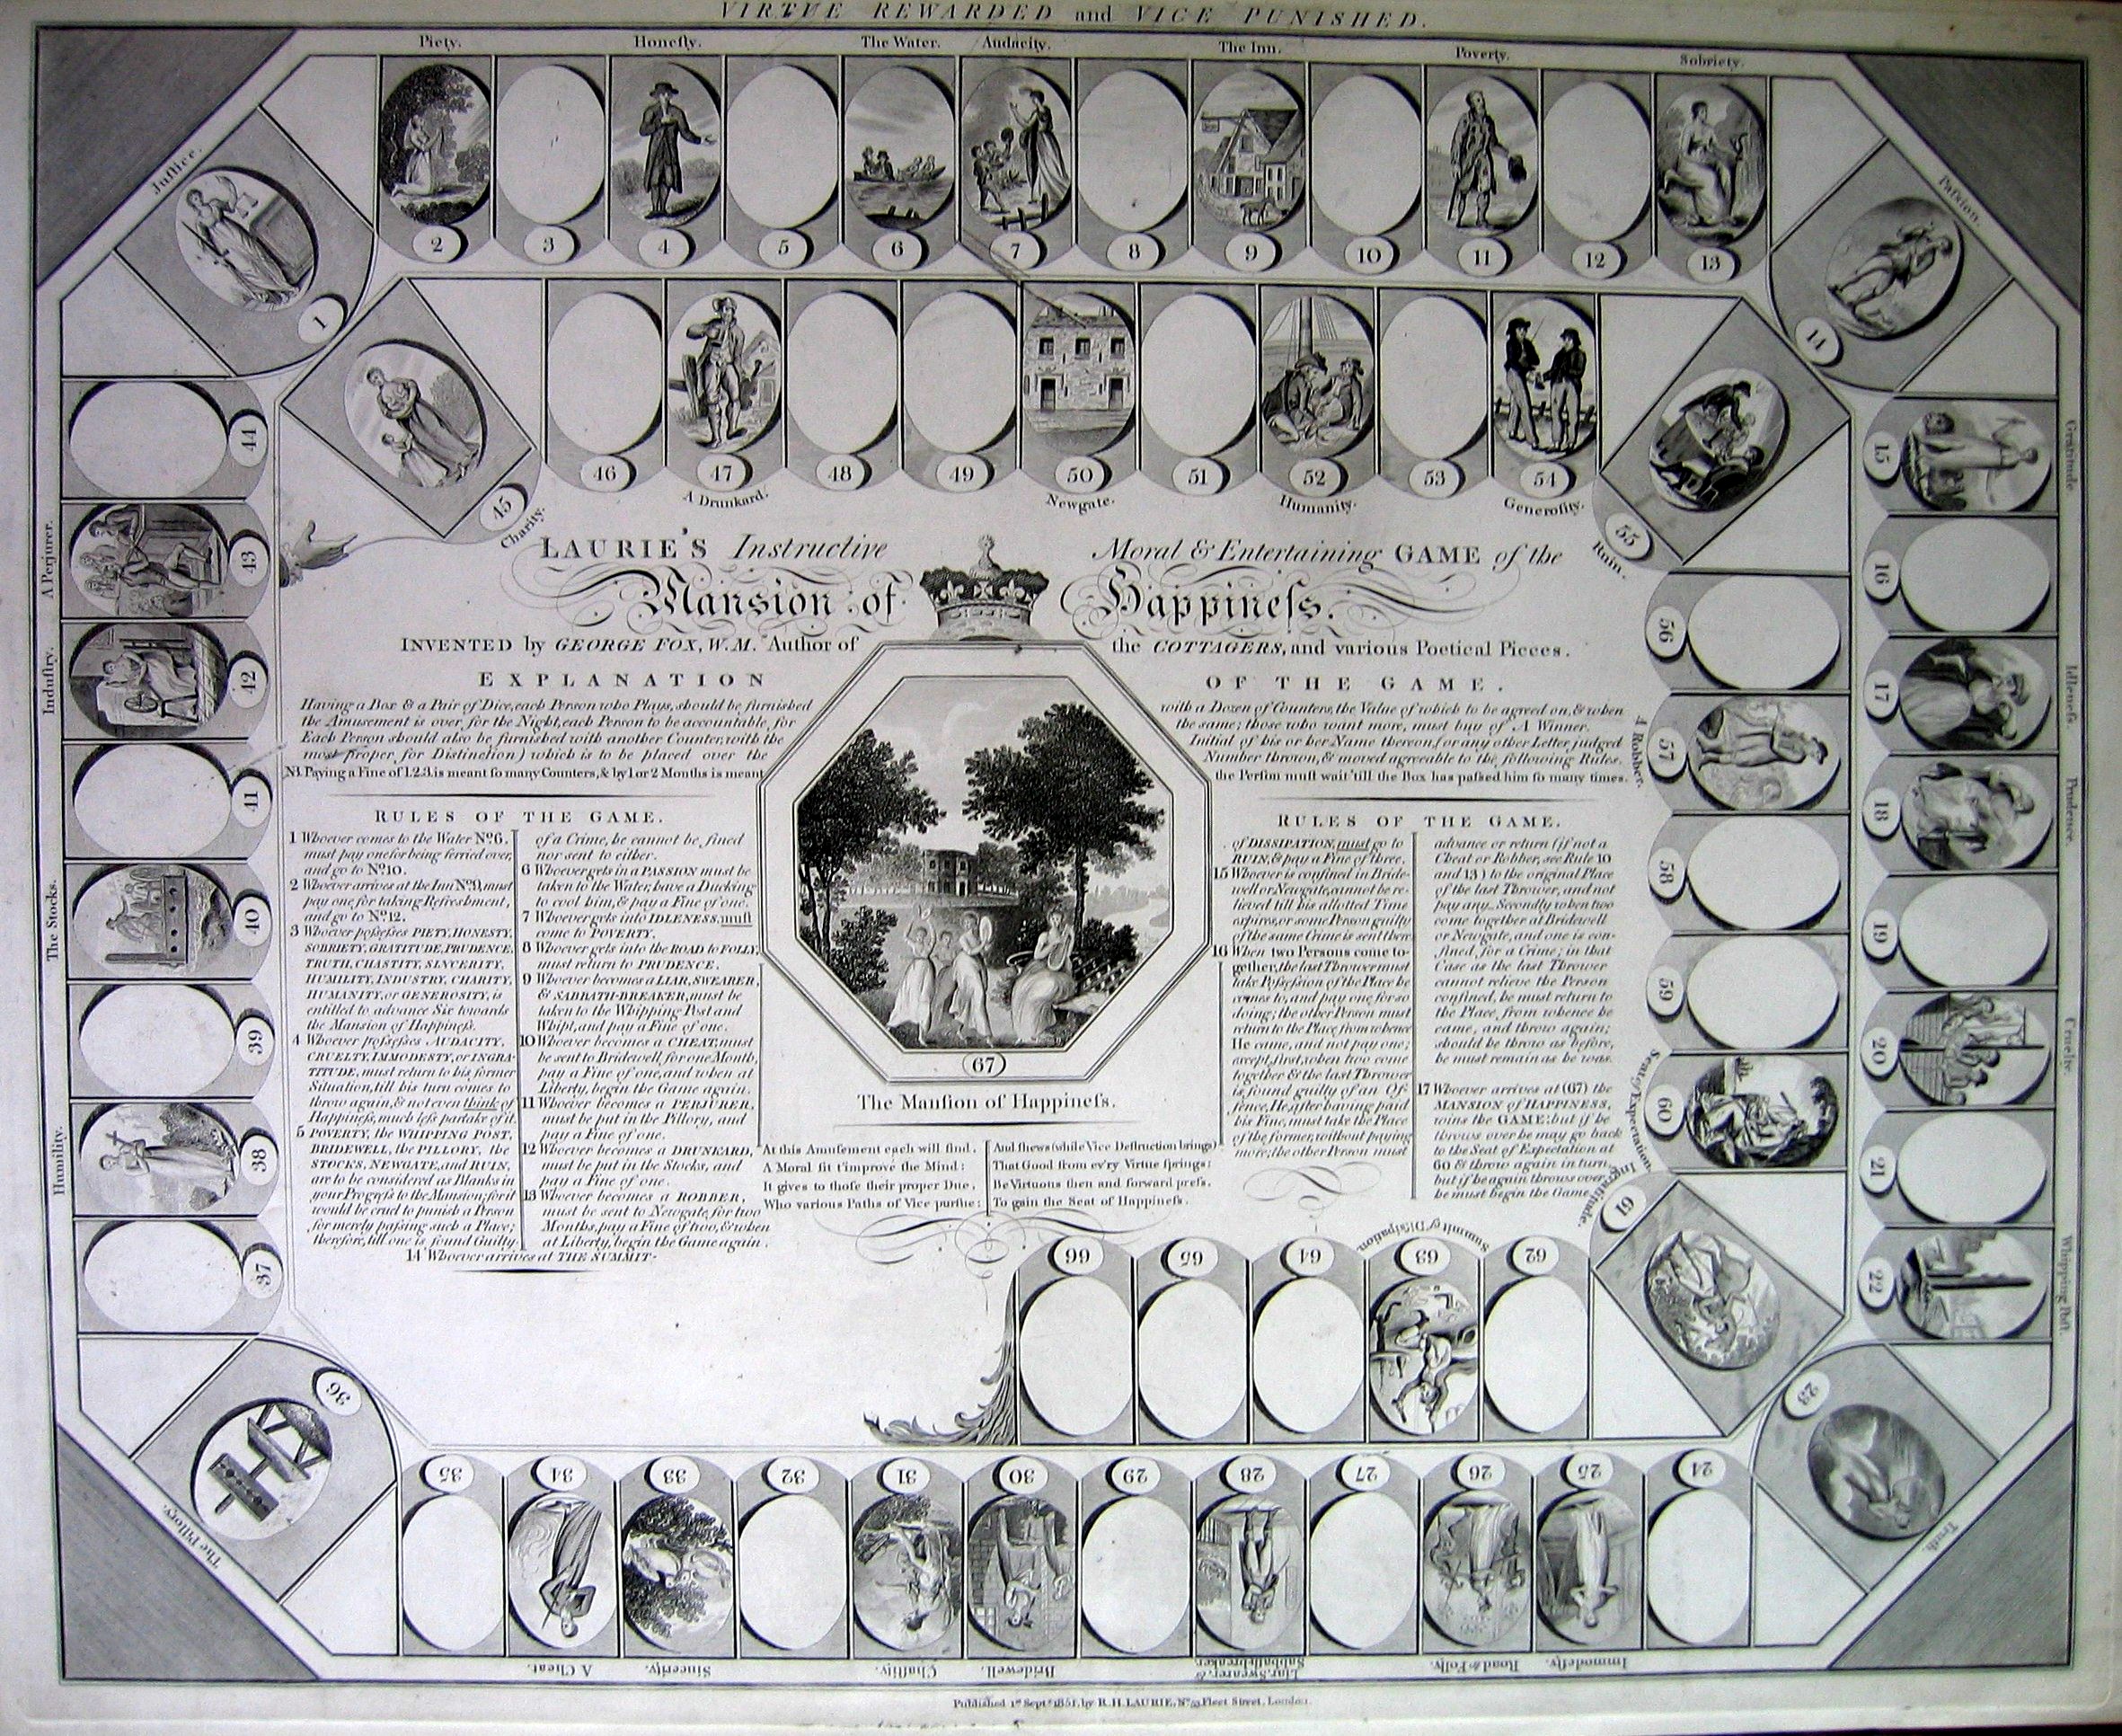 VIRTUE REWARDED and VICE PUNISHED.
Piety.
Honeſty.
The Water.
Audacity.
The Inn.
Poverty.
Sobriety.
Juſtice.
Paſsion.
1
2
3
4
5
6
7
8
9
10
11
12
13
14
Gratitude
15
16
Idleneſs.
17
Prudence.
18
19
Cruelty.
20
21
Whipping Poſt.
22
23
Truth.
24
25
Immodeſty.
26
Road to Folly.
27
28
Liar, Swearer, &
Sabbathbreaker.
29
30
Bridewell.
31
Chaſtity.
32
33
Sincerity.
34
A Cheat.
35
36
The Pillory.
37
38
Humility.
39
40
The Stocks.
41
42
Induſtry.
43
A Perjurer.
44
45
Charity.
46
47
A Drunkard.
48
49
50
Newgate.
51
52
Humanity.
53
54
Generoſity.
55
Ruin.
56
57
A Robber.
58
59
60
Seat of Expectation.
61
Ingratitude.
62
63
Summit of Diſsipation.
64
65
66
LAURIE'S Instructive Moral & Entertaining GAME of the
Mansion of Happineſs.
INVENTED by GEORGE FOX, W.M. Author of the COTTAGERS, and various Poetical Pieces.
EXPLANATION OF THE GAME.
Having a Box & a Pair of Dice, each Person who Plays, should be furnished with a Dozen of Counters, the Value of which to be agreed on, & when
the Amusement is over, for the Night, each Person to be accountable, for the same; those who want more, must buy of A Winner.
Each Person should also be furnished with another Counter, with the Initial of his or her Name thereon, (or any other Letter, judged
most proper, for Distinction) which is to be placed over the Number thrown, & moved agreeable to the following Rules.
NB. Paying a Fine of 1.2.3. is meant so many Counters, & by 1 or 2 Months is meant the Perſon muſt wait 'till the Box has paſsed him ſo many times.
RULES OF THE GAME.
1 Whoever comes to the Water Nº. 6.
must pay one for being ferried over,
and go to Nº. 10.
2 Whoever arrives at the Inn Nº. 9, must
pay one for taking Refreshment,
and go to Nº. 12.
3 Whoever poſseſses PIETY, HONESTY,
SOBRIETY, GRATITUDE, PRUDENCE,
TRUTH, CHASTITY, SINCERITY,
HUMILITY, INDUSTRY, CHARITY,
HUMANITY, or GENEROSITY, is
entitled to advance Six towards
the Mansion of Happineſs.
4 Whoever poſseſses AUDACITY,
CRUELTY, IMMODESTY, or INGRA-
TITUDE, must return to his former
Situation, till his turn comes to
throw again, & not even think of
Happineſs, much leſs partake of it.
5 POVERTY, the WHIPPING POST,
BRIDEWELL, the PILLORY, the
STOCKS, NEWGATE, and RUIN,
are to be considered as Blanks in
your Progreſs to the Mansion; for it
would be cruel to punish a Person
for merely paſsing such a Place;
therefore, till one is found Guilty
of a Crime, he cannot be fined
nor sent to either.
6 Whoever gets in a PASSION must be
taken to the Water, have a Ducking
to cool him, & pay a Fine of one.
7 Whoever gets into IDLENESS, muſt
come to POVERTY.
8 Whoever gets into the ROAD to FOLLY,
must return to PRUDENCE.
9 Whoever becomes a LIAR, SWEARER,
& SABBATH-BREAKER, must be
taken to the Whipping Post and
Whipt, and pay a Fine of one.
10 Whoever becomes a CHEAT, must
be sent to Bridewell, for one Month,
pay a Fine of one, and when at
Liberty, begin the Game again.
11 Whoever becomes a PERJURER,
must be put in the Pillory, and
pay a Fine of one.
12 Whoever becomes a DRUNKARD,
must be put in the Stocks, and
pay a Fine of one.
13 Whoever becomes a ROBBER,
must be sent to Newgate, for two
Months, pay a Fine of two, & when
at Liberty, begin the Game again.
14 Whoever arrives at THE SUMMIT
67
The Manſion of Happineſs.
At this Amuſement each will find,
A Moral fit t'improve the Mind:
It gives to thoſe their proper Due,
Who various Paths of Vice purſue:
And ſhews (while Vice Deſtruction brings)
That Good from ev'ry Virtue ſprings:
Be Virtuous then and forward preſs,
To gain the Seat of Happineſs.
RULES OF THE GAME.
of DISSIPATION, must go to
RUIN, & pay a Fine of three.
15 Whoever is confined in Bride-
well or Newgate, cannot be re-
lieved till his allotted Time
expires, or some Person guilty
of the same Crime is sent there
16 When two Persons come to-
gether, the last Thrower must
take Poſseſsion of the Place he
comes to, and pay one for so
doing; the other Person must
return to the Place from whence
He came, and not pay one;
except, first, when two come
together & the last Thrower
is found guilty of an Of-
fence, He, after having paid
his Fine, must take the Place
of the former, without paying
more; the other Person must
advance or return (if not a
Cheat or Robber, see Rule 10
and 13) to the original Place
of the last Thrower, and not
pay any. Secondly when two
come together at Bridewell
or Newgate, and one is con-
fined, for a Crime; in that
Case as the last Thrower
cannot relieve the Person
confined, he must return to
the Place, from whence he
came, and throw again;
should he throw as before,
he must remain as he was.
17 Whoever arrives at (67) the
MANSION of HAPPINESS,
wins the GAME: but if he
throws over he may go back
to the Seat of Expectation at
60 & throw again in turn,
but if he again throws over
he must begin the Game
Published 1st Septr. 1851, by R. H. LAURIE, Nº. 53, Fleet Street, London.